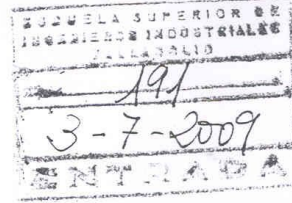 ESCUELA SUPERIOR DE
INGENIEROS INDUSTRIALES
VALLADOLID
191
3-7-2009
ENTRADA